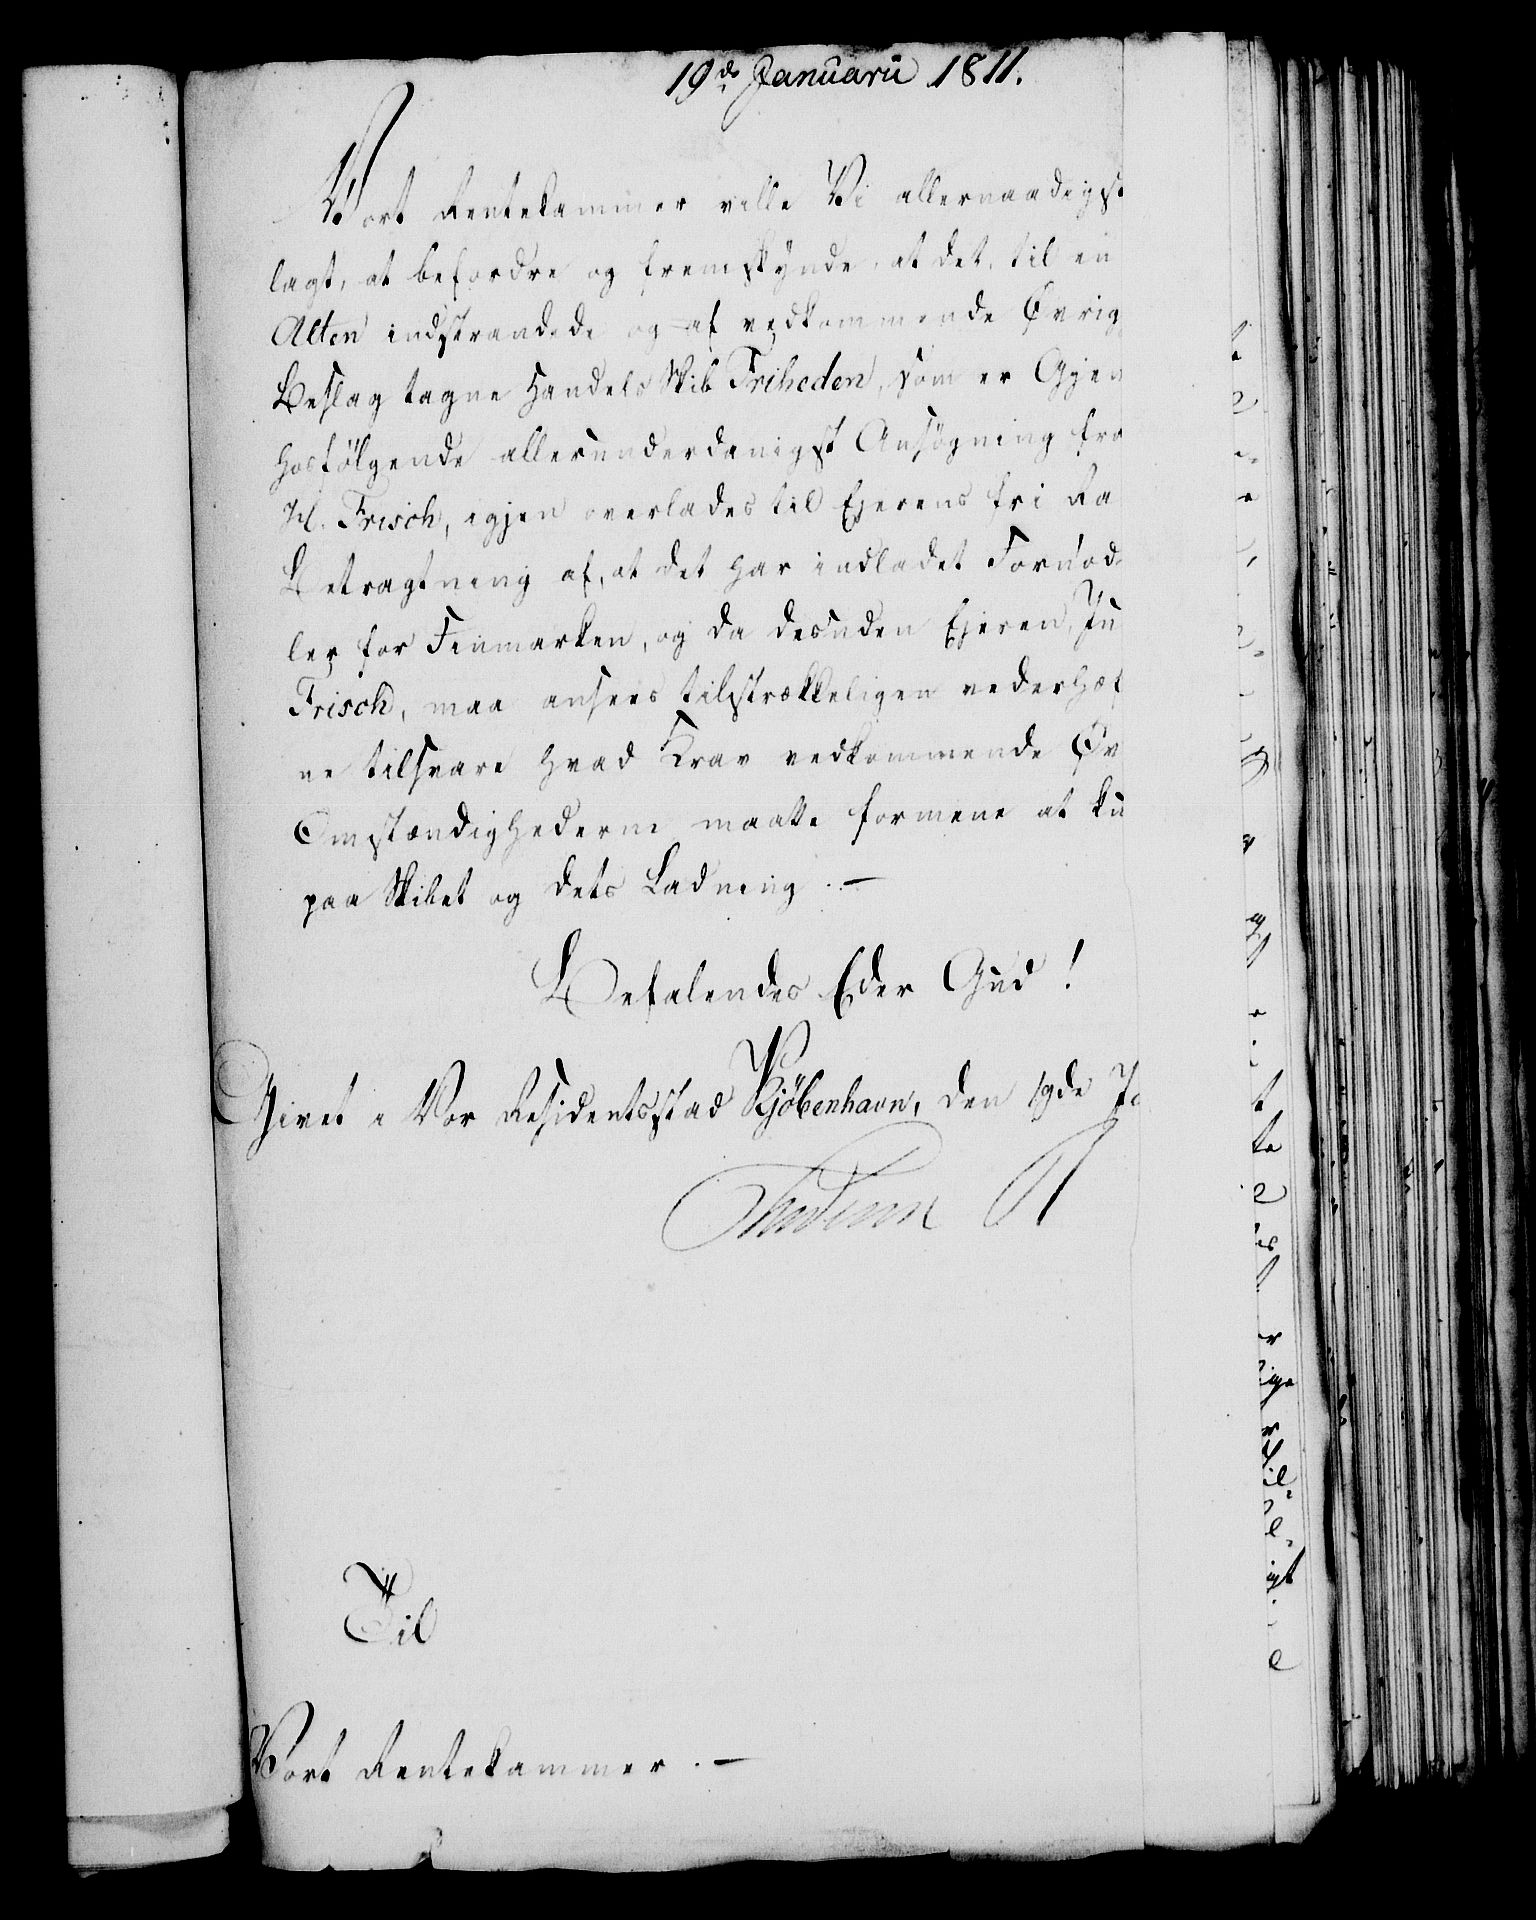 19de Januarii 1811.
Vort Rentekammer ville Vi allernaadigst
lagt, at befordre og fremskynde, at det, til en
Alten indstrandede og af vedkommende Øvrig
Beslag tagne Handels Skib Friheden, som er Gjen
hosfölgende allerunderdanigst Ansögning fra
Frisch, igjen overlades til Ejerens fri Ra
Betragtning af, at det har indladet Fornød-
ler for Finmarken, og da desuden Ejeren, Ju
Frisch, maa ansees tilstrækkeligen vederhæf
ne tilsvare hvad Krav vedkommende Øv
Omstændighederne maatte formene at ku
paa Skibet og dets Ladning . —
Befalendes Eder Gud !
Givet i Vor Residentsstad Kjöbenhavn, den 19de Ja
Frederik R
Til
Vort Rentekammer . —